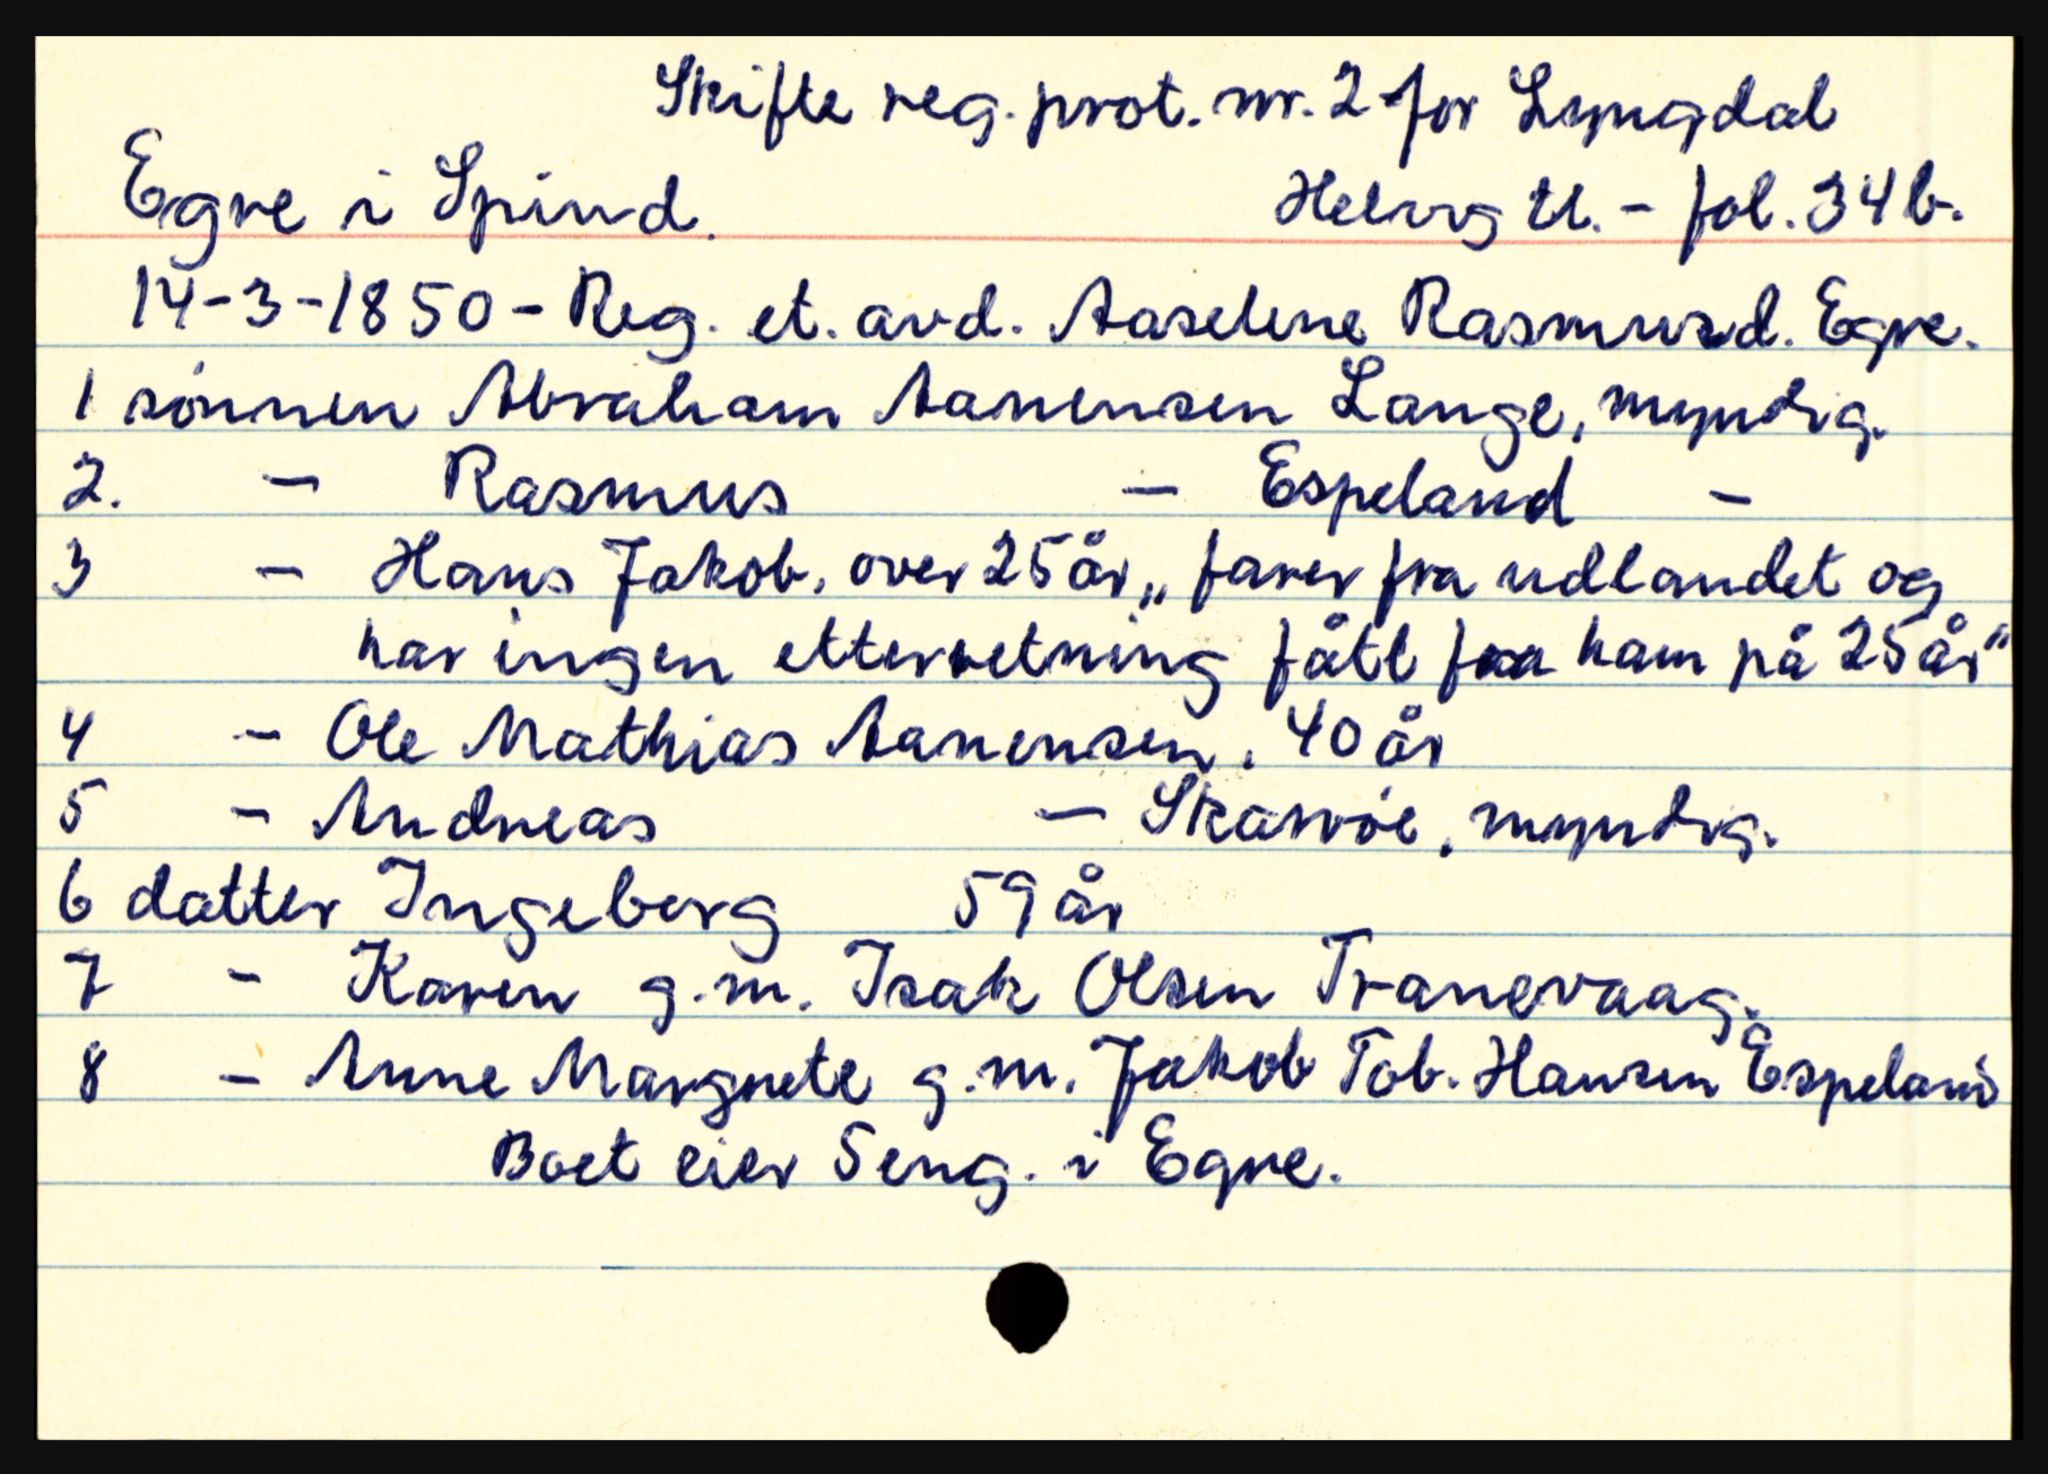 Skifte reg. prot. nr. 2 for Lyngdal
Egre i Spind. Helvig tl. - fol. 34 b.
14-3-1850 - Reg. et. avd. Aaselene Rasmusd. Egre.
1 sønnen Abraham Aanensen Lange, myndig.
2. - Rasmus - Espeland -
3 - Hans Jakob, over 25 år „ farer fra udlandet og
har ingen etterretning fått fra ham på 25 år"
4 - Ole Mathias Aanensen, 40 år
5 - Andreas - Skarvøe, myndig.
6 datter Ingeborg 59 år
7 - Karen g.m. Isak Olsen Tranevaag.
8 - Anne Margrete g.m. Jakob Tob. Hansen Espeland
Boet eier 5 eng. i Egre.